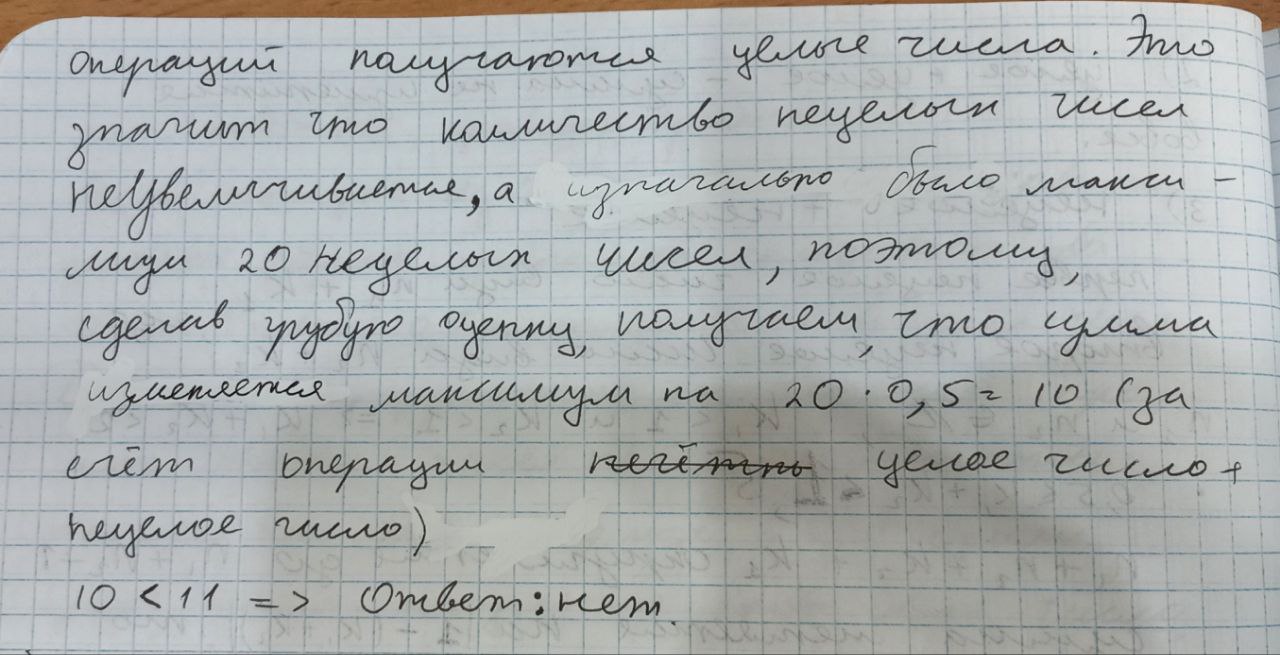 операций получаются целые числа. Это
значит что количество нецелых чисел
неувеличивается, а изначально было макси-
мум 20 нецелых чисел, поэтому,
сделав грубую оценку, получаем, что сумма
изменяется максимум на 20 · 0,5 = 10 (за
счёт операции нечётнь целое число +
нецелое число)
10 < 11 => Ответ: нет